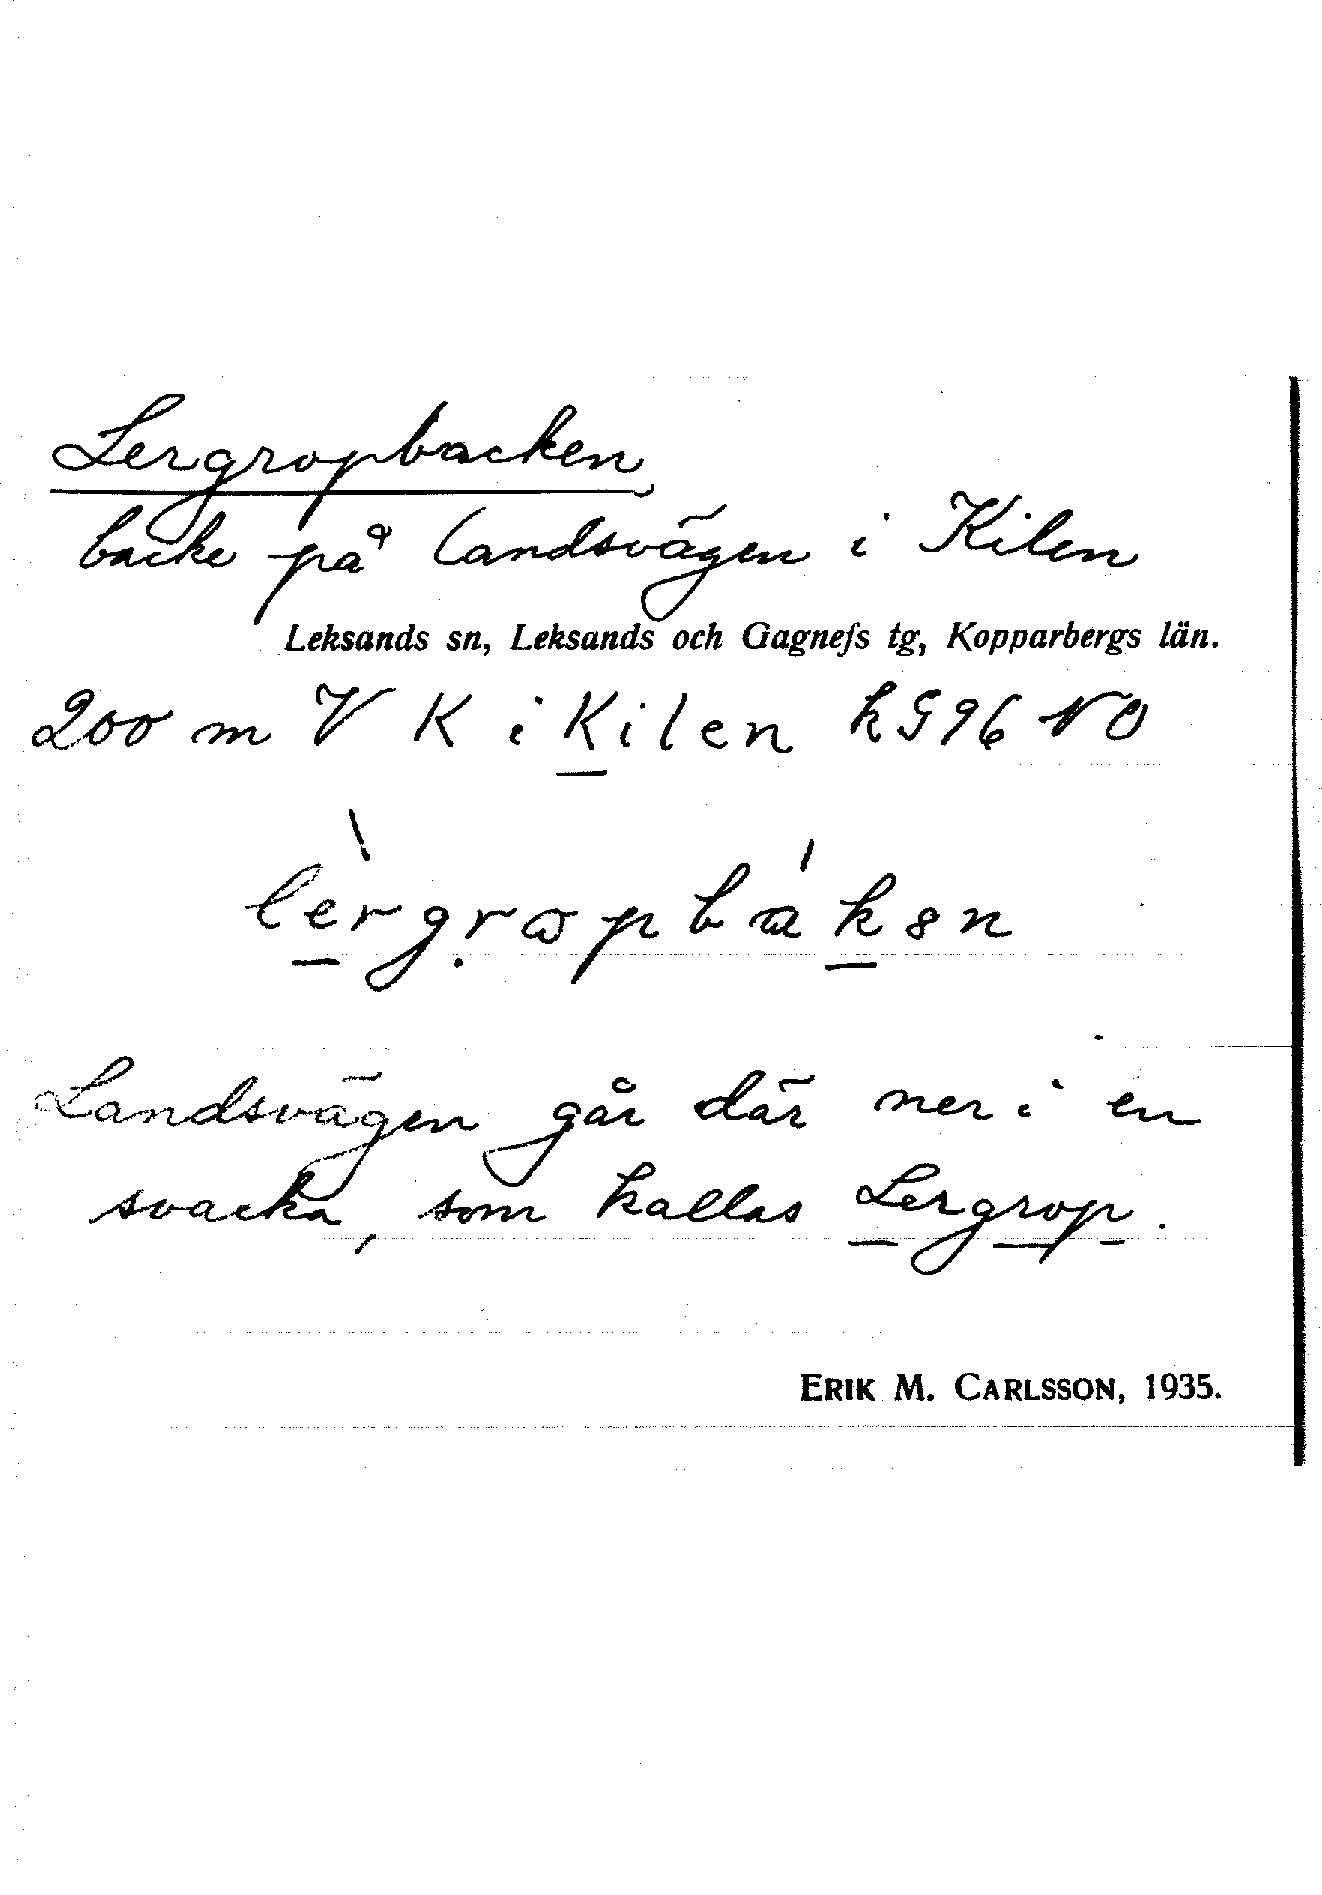 Lergropbacken
backe på landsvägen i Kilen
Leksands sn, Leksands och Gagnefs tg, Kopparbergs län.
200 m V K i Kilen k G 96 NO
Landsvägen går där ner i en
svacka, som kallas Lergrop.
ERIK M. CARLSSON, 1935.